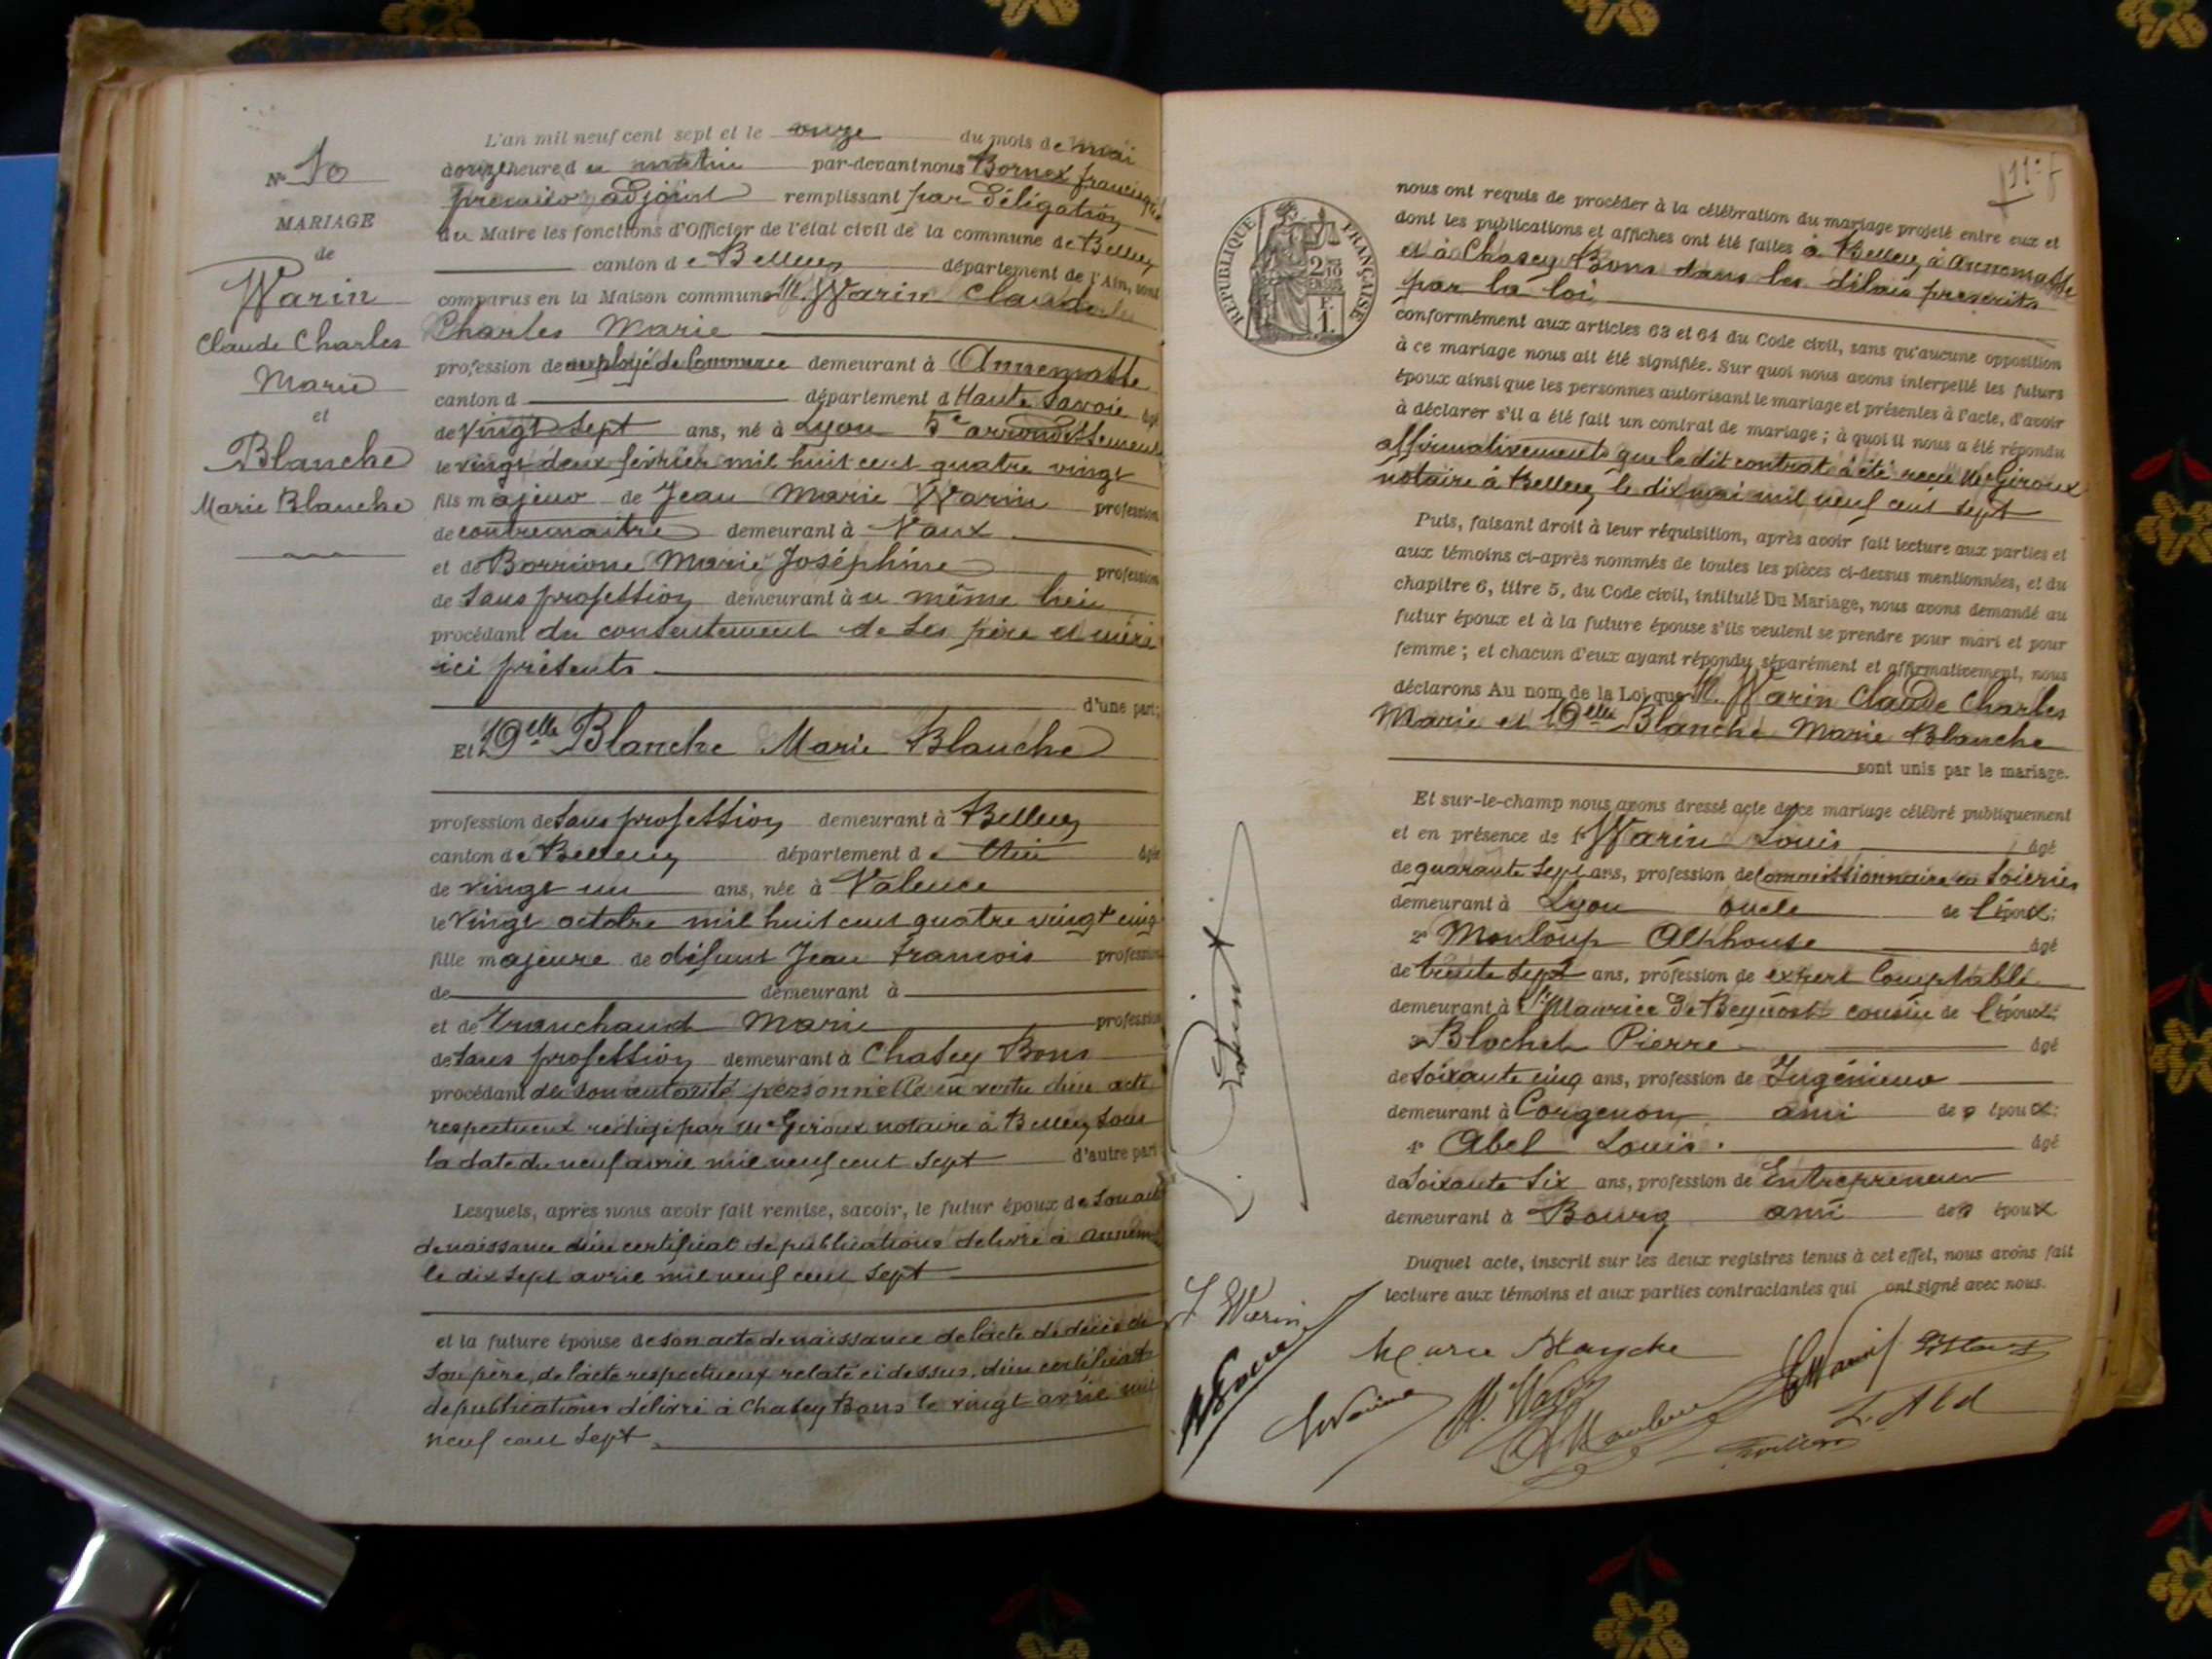 N° 10
MARIAGE
de
Warin
Claude Charles
Marie
et
Blanche
Marie Blanche
L'an mil neuf cent sept et le onze du mois de mai
à onze heure du matin par-devant nous Bornex
premier adjoint remplissant par déligation
du Maire les fonctions d'Officier de l'état civil de la commune de Belley
canton de Belley département de l'Ain, sont
comparus en la Maison commune M. Warin Claude
Charles Marie
profession de employé de Commerce demeurant à Annemasse
canton d département d Haute Savoie âgé
de Vingt sept ans, né à Lyon 5e arrondissement
le vingt deux février mil huit cent quatre vingt
fils majeur de Jean Marie Warin profession
de contremaitre demeurant à Vaux
et de Borrione Marie Joséphine profession
de sans profession demeurant à u même lieu
procédant du consentement de ses père et mère
ici présents
d'une part;
Et Delle Blanche Marie Blanche
profession de sans profession demeurant à Belley
canton de Belley département de Ain âgée
de vingt un ans, née à Valence
le Vingt octobre mil huit cent quatre vingt cinq
fille majeure de défunt Jean Francois profession
de demeurant à
et de Tranchand Marie profession
de sans profession demeurant à Chasey Bons
procédant de son autorité personnelle en vertu d'un acte
respectueux rédigé par Me Giroux notaire à Belley sous
la date du neuf avril mil neuf cent sept d'autre part
Lesquels, après nous avoir fait remise, savoir, le futur époux de son acte
de naissance d'un certificat de publications délivré à
le dix sept avril mil neuf cent sept
et la future épouse de son acte de naissance de l'acte de décès de
son père, de l'acte respectueux relaté ci dessus, d'un certificat
de publications délivré à Chasey Bons le vingt avril mil
neuf cent sept.
11e
REPUBLIQUE FRANÇAISE
2/10 EN SUS
F. 1.
nous ont requis de procéder à la célébration du mariage projeté entre eux et
dont les publications et affiches ont été faites à Belley, à Annemasse
et à Chasey Bons dans les délais prescrits
par la loi
conformément aux articles 63 et 64 du Code civil, sans qu'aucune opposition
à ce mariage nous ait été signifiée. Sur quoi nous avons interpellé les futurs
époux ainsi que les personnes autorisant le mariage et présentes à l'acte, d'avoir
à déclarer s'il a été fait un contrat de mariage; à quoi il nous a été répondu
affirmativement que le dit contrat a été recu Me Giroux
notaire à Belley le dix mai mil neuf cent sept
Puis, faisant droit à leur réquisition, après avoir fait lecture aux parties et
aux témoins ci-après nommés de toutes les pièces ci-dessus mentionnées, et du
chapitre 6, titre 5, du Code civil, intitulé Du Mariage, nous avons demandé au
futur époux et à la future épouse s'ils veulent se prendre pour mari et pour
femme; et chacun d'eux ayant répondu séparément et affirmativement, nous
déclarons Au nom de la Loi que M. Warin Claude Charles
Marie et Delle Blanche Marie Blanche
sont unis par le mariage.
Et sur-le-champ nous avons dressé acte de ce mariage célébré publiquement
et en présence de 1° Warin Louis âgé
de quarante sept ans, profession de Commissionnaire en Soieries
demeurant à Lyon oncle de l'époux;
2° Monloup Alphonse âgé
de trente sept ans, profession de expert Comptable
demeurant à St Maurice de Beynost cousin de l'époux;
3° Blochet Pierre âgé
de soixante cinq ans, profession de Ingénieur
demeurant à Corgenon ami des époux;
4° Abel Louis. âgé
de soixante six ans, profession de Entrepreneur
demeurant à Bourg ami des époux.
Duquel acte, inscrit sur les deux registres tenus à cet effet, nous avons fait
lecture aux témoins et aux parties contractantes qui ont signé avec nous.
Marie Blanche
L. Abel